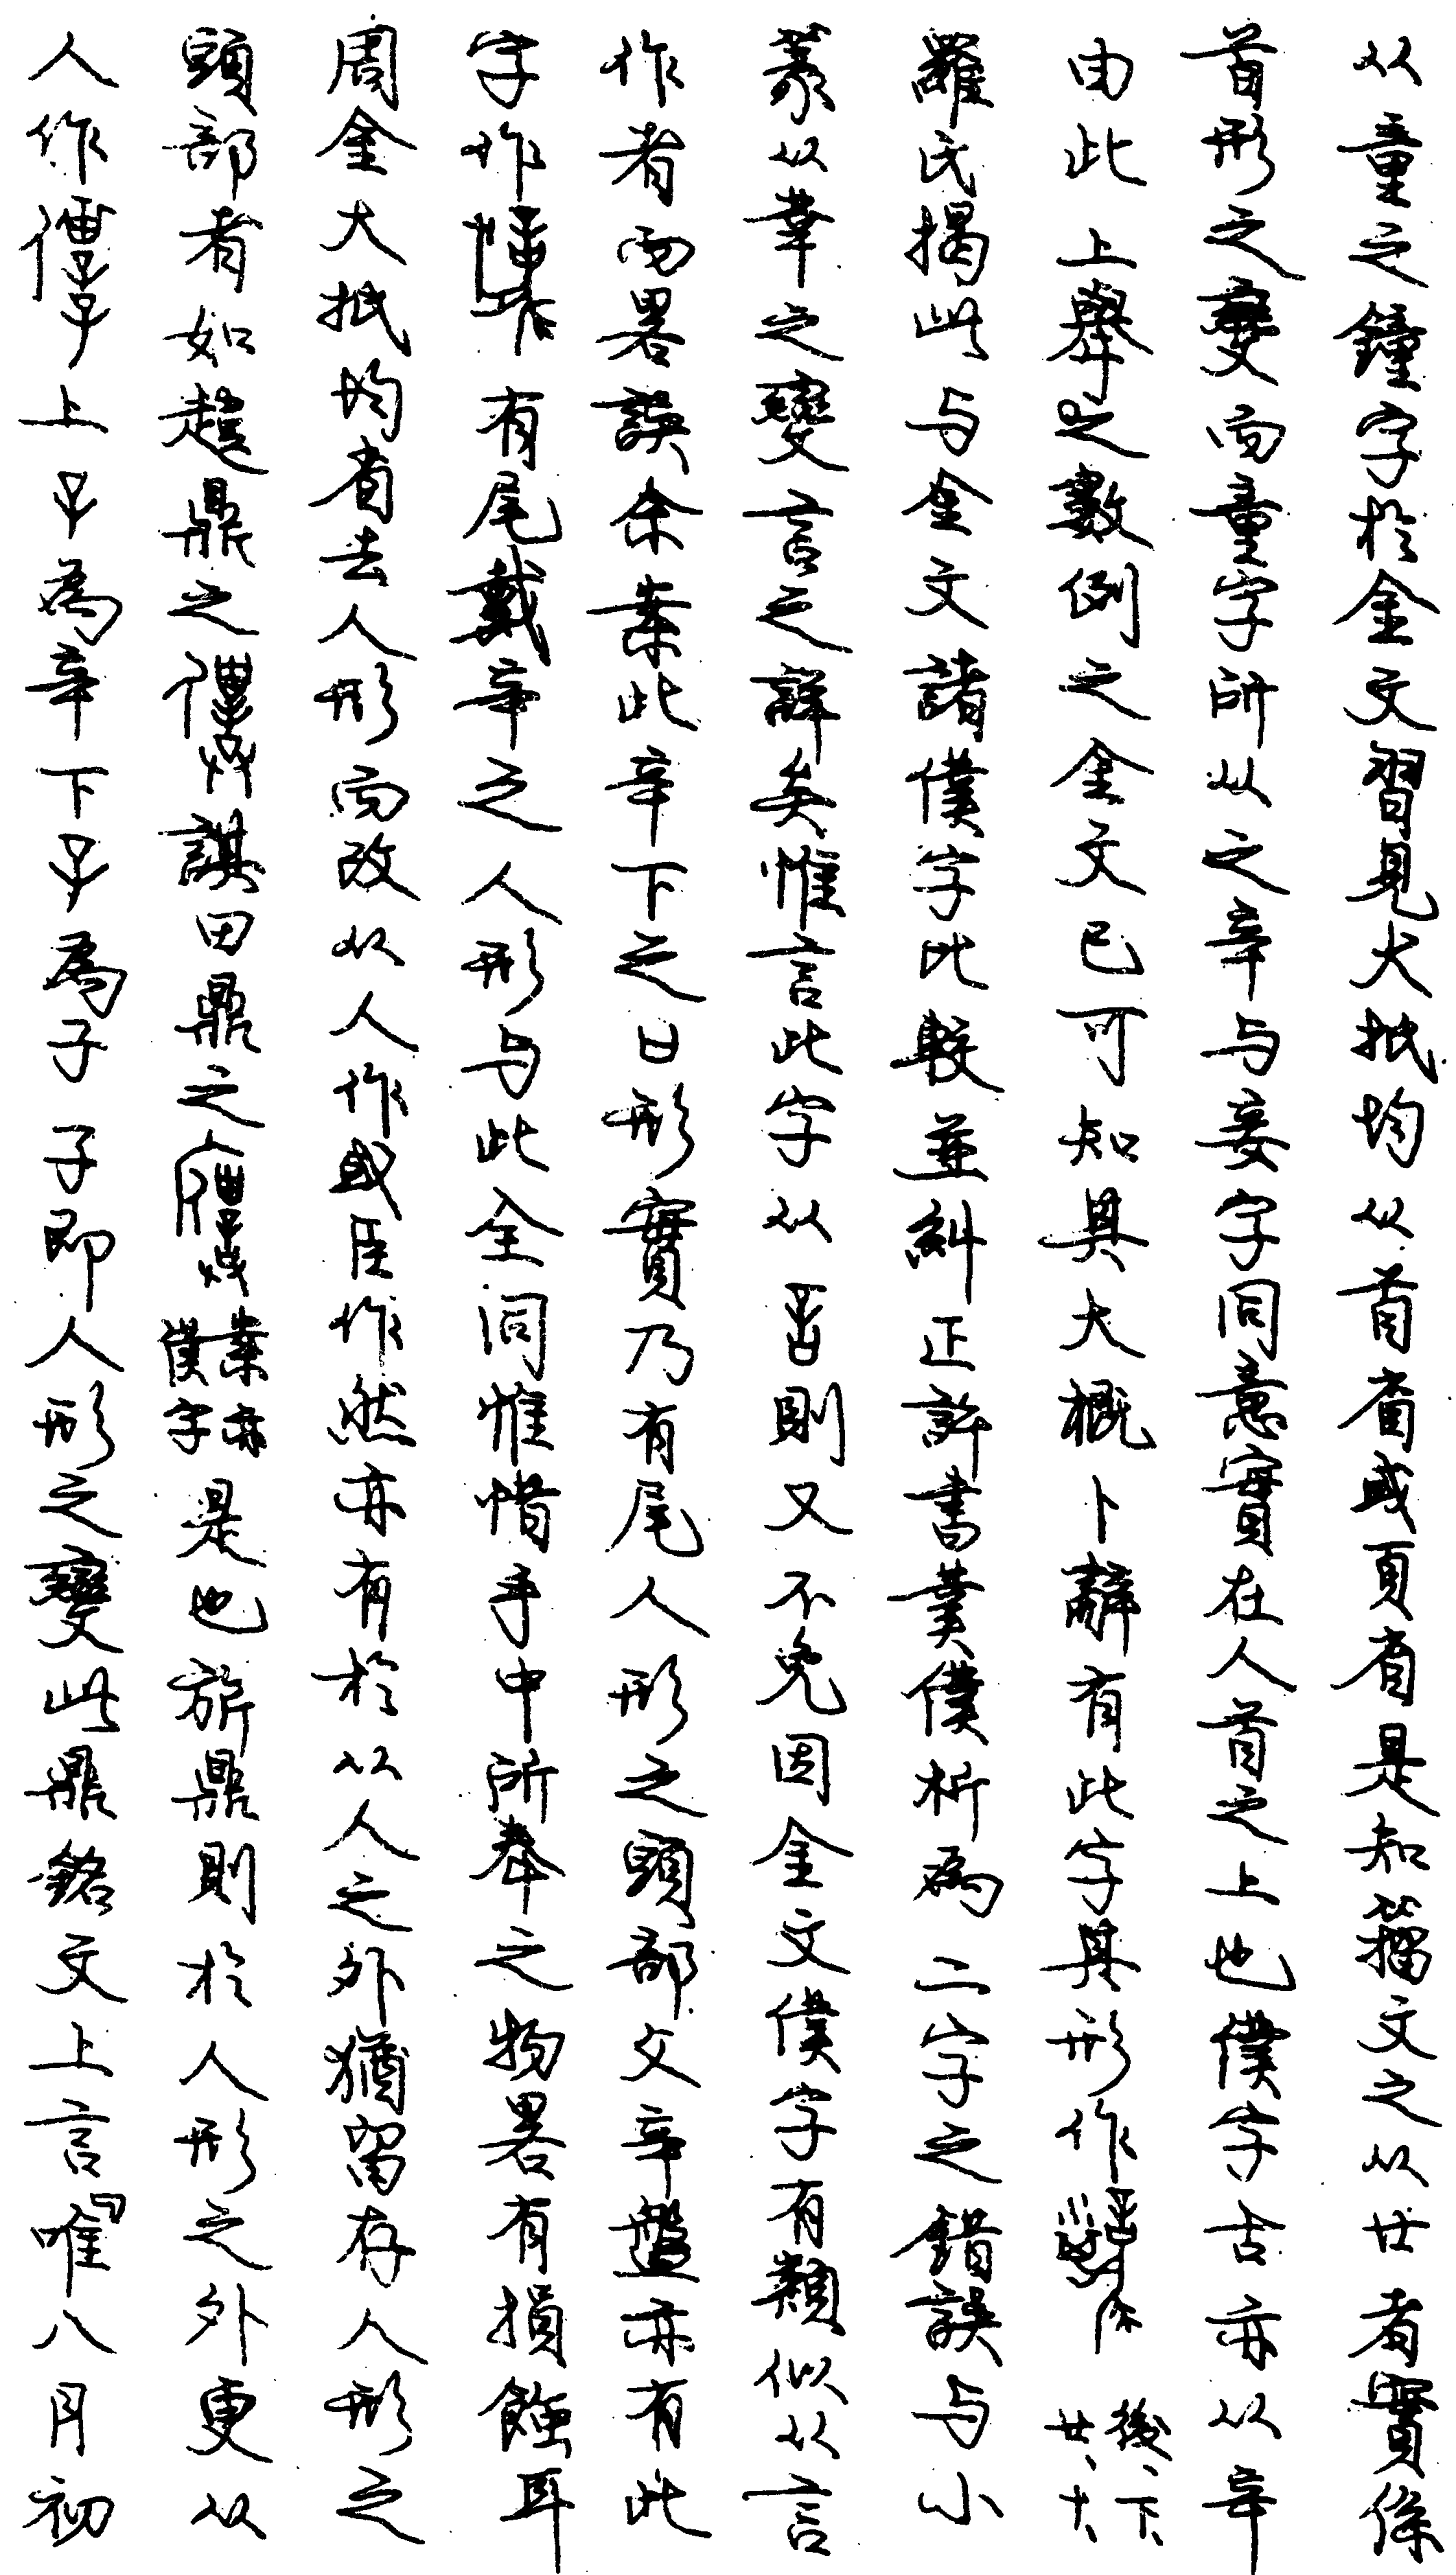 从童之鐘字於金文習見大抵均从首省或頁省是知籀文之从廿者實係
首形之變而童字所从之辛与妾字同意實在人首之上也僕字古亦从辛
由此上舉之數例之金文已可知其大概卜辭有此字其形作 後、下、廿、十、
羅氏揭此与金文諸僕字比較並糾正許書菐僕析為二字之錯誤与小
篆从丵之變言之詳矣惟言此字从 則又不免因金文僕字有類似从言
作者而畧誤余案此辛下之日形實乃有尾人形之頭部父辛盤亦有此
字作 有尾戴辛之人形与此全同惟惜手中所奉之物畧有損蝕耳
周金大抵均省去人形而改从人作或臣作然亦有於从人之外猶留存人形之
頭部者如趞鼎之 諆田鼎之 案亦僕字是也旂鼎則於人形之外更从
人作 上 為辛下 為子子即人形之變此鼎銘文上言『唯八月初